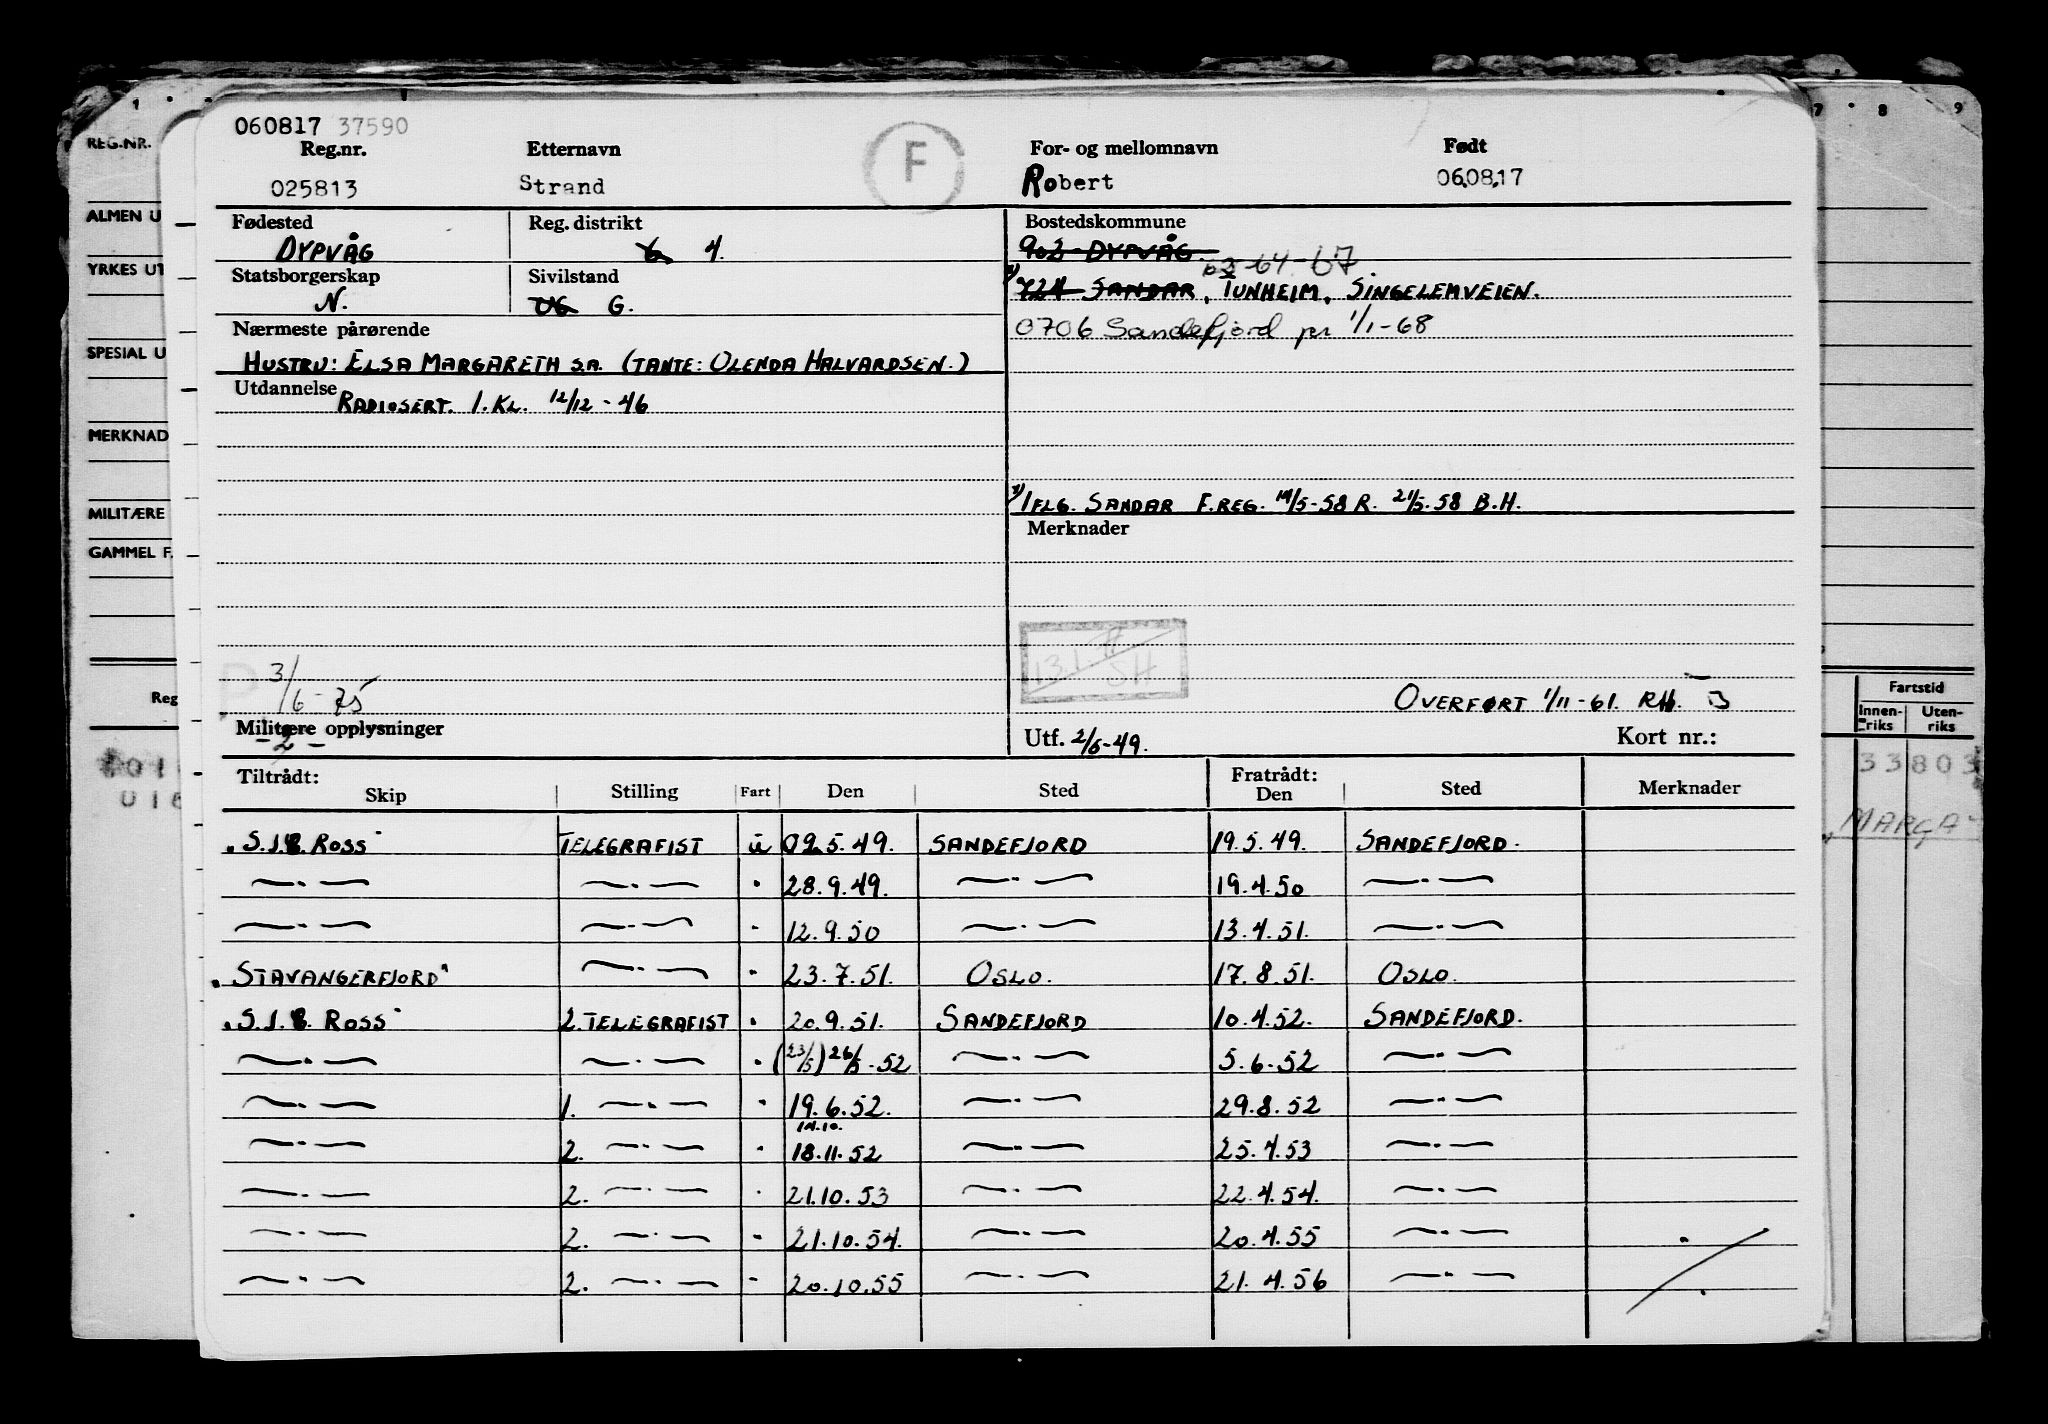 060817 37590
Reg.nr. Etternavn F For- og mellomnavn Født
025813 Strand Robert 06.08.17
Fødested Reg. distrikt Bostedskommune
DYPVÅG 6 4. 902 - DYPVÅG
63-64-67
Statsborgerskap Sivilstand
N. UG G. 724 SANDAR, TUNHEIM, SINGELEMVEIEN.
Nærmeste pårørende 0706 Sandefjord per 1/1-68
HUSTRU: ELSA MARGARETH S.A. (TANTE: OLENDA HALVARDSEN.)
Utdannelse RADIOSERT. 1.KL. 12/12-46
IFLG. SANDAR F.REG. 14/5-58 R. 21/5.58 B.H.
Merknader
3/6-75
13.1 SH
OVERFØRT 1/11-61. RH.
Militære opplysninger Utf. 2/6-49. Kort nr.:
-2-
Tiltrådt: Fratrådt:
Skip Stilling Fart Den Sted Den Sted Merknader
"S.J.E. ROSS" TELEGRAFIST u 02.5.49. SANDEFJORD 19.5.49. SANDEFJORD.
—.— —.— " 28.9.49. —.— 19.4.50 —.—
—.— —.— " 12.9.50 —.— 13.4.51. —.—
"STAVANGERFJORD" —.— " 23.7.51. OSLO. 17.8.51. OSLO.
"S.J.E. ROSS" 2. TELEGRAFIST " 20.9.51. SANDEFJORD 10.4.52. SANDEFJORD.
—.— —.— " (23/5) 26/5-52 —.— 5.6.52 —.—
—.— 1. —.— " 19.6.52. —.— 29.8.52 —.—
14.10.
—.— 2. —.— " 18.11.52 —.— 25.4.53 —.—
—.— 2. —.— " 21.10.53 —.— 22.4.54. —.—
—.— 2. —.— " 21.10.54. —.— 20.4.55 —.—
—.— 2. —.— " 20.10.55 —.— 21.4.56 —.—
1
REG.NR.
ALMEN U
YRKES UT
SPESIAL U
MERKNAD
MILITÆRE
GAMMEL F.
Reg
7 8 9
Fartstid
Innen-riks Uten-riks
33803
MARGA